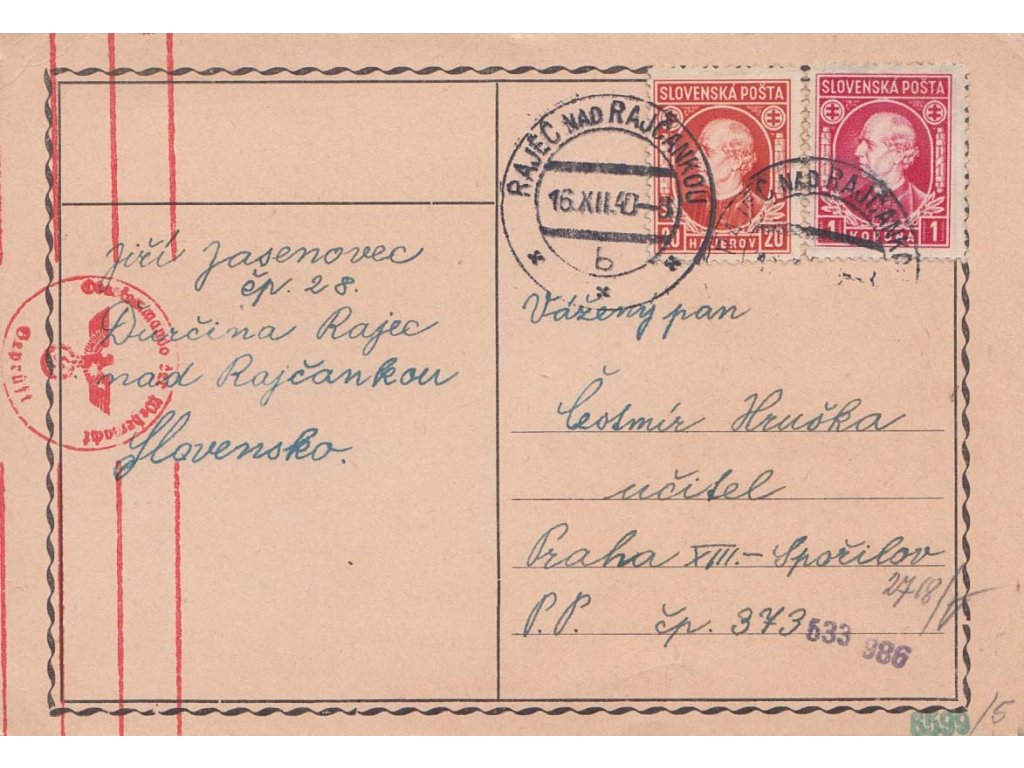 SLOVENSKÁ POŠTA
20 HALIEROV 20
SLOVENSKÁ POŠTA
1 KORUNA 1
RAJEC NAD RAJČANKOU
16.XII.40-8
b
RAJEC NAD RAJČANKOU
Jiří Jasenovec
čp. 28.
Ďurčina Rajec
nad Rajčankou
Slovensko.
Oberkommando der Wehrmacht
Geprüft
Vážený pan
Čestmír Hruška
učitel
Praha XIII.-Spořilov
P.P. čp. 373
2718/
533 986
6599/5